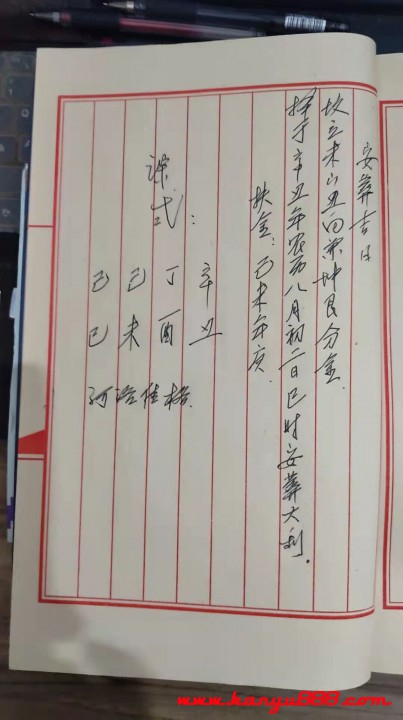 安葬吉日
坟立未山丑向兼坤艮分金.
择于辛丑年农历八月初二日巳时安葬大利.
扶金:己未年庚.
课式:
辛丑
丁酉
己未
己巳
河洛佳格.
www.kanyu888.com